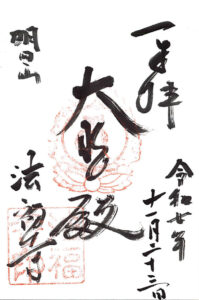 奉拝
令和七年
十一月二十三日
大悲殿
明日山
法福寺